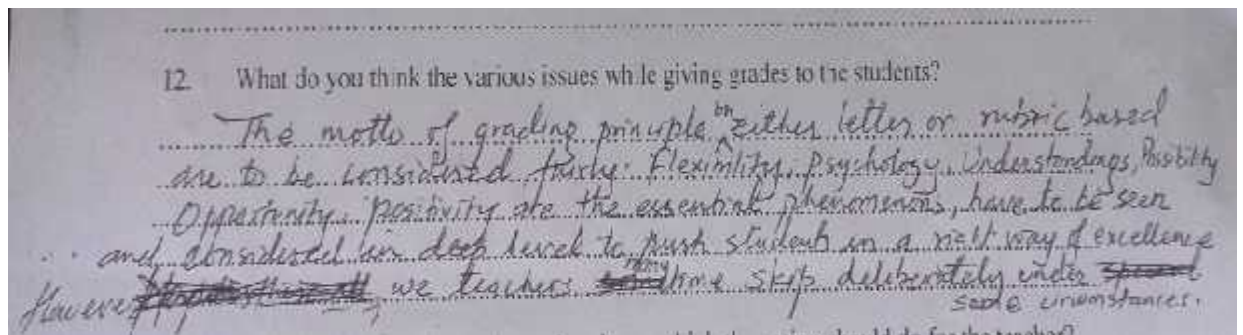 12. What do you think the various issues while giving grades to the students?
The motto of grading principle on either letter or rubric based
are to be considered fairly. Fleximility, Psychology, Understandings, Possibility
Opportunity, positivity are the essential phenomenons, have to be seen
and considered in deep level to push students in a way of excellence
However, we teachers time skip deliberately under
some circumstances.